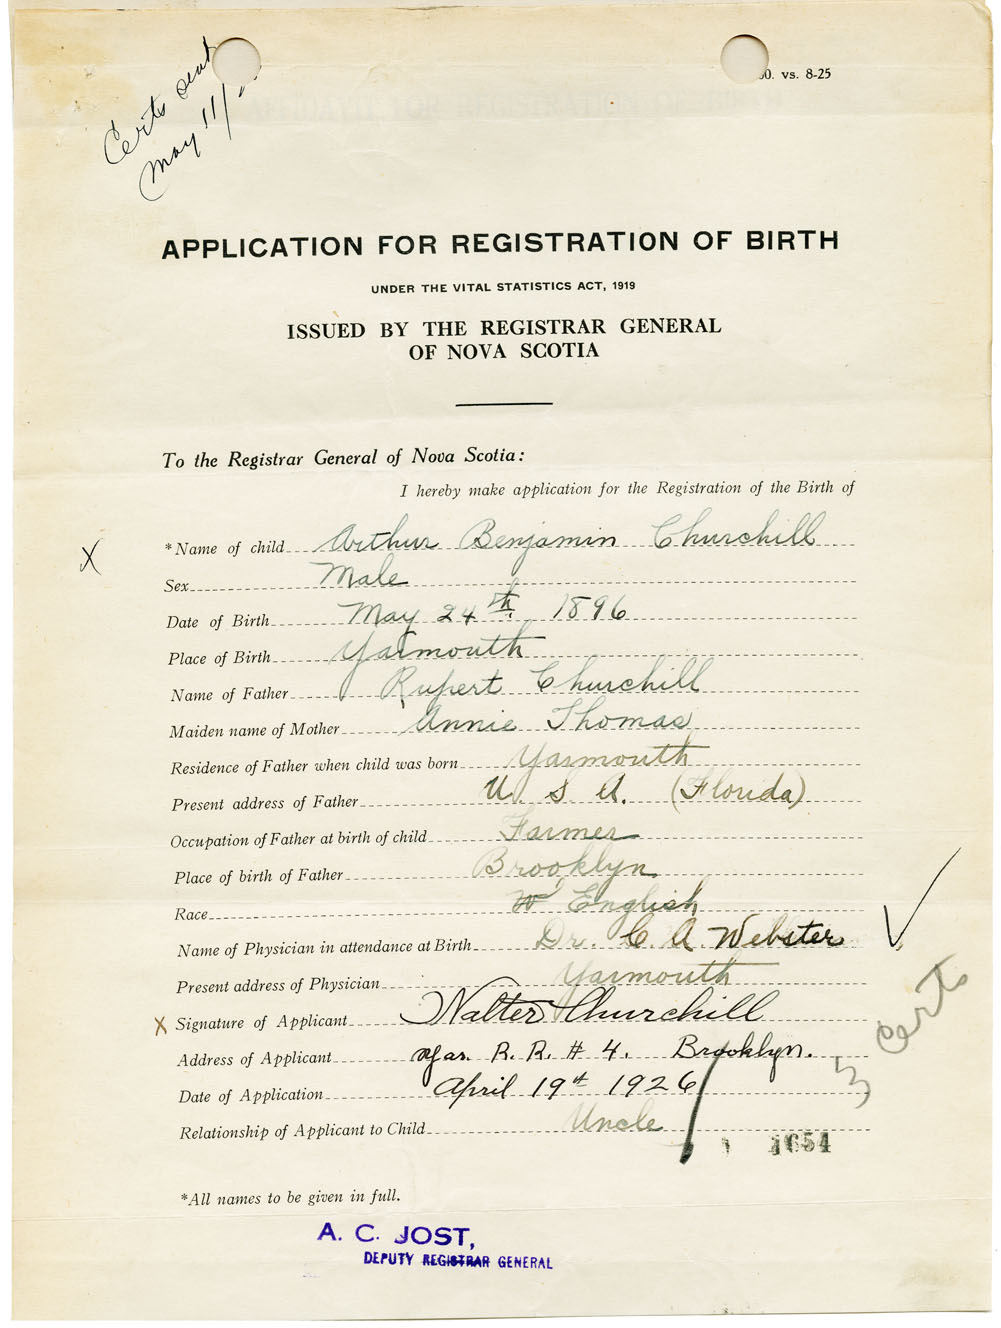 Certs sent
May 11/
00. vs. 8-25
APPLICATION FOR REGISTRATION OF BIRTH
UNDER THE VITAL STATISTICS ACT, 1919
ISSUED BY THE REGISTRAR GENERAL
OF NOVA SCOTIA
To the Registrar General of Nova Scotia:
I hereby make application for the Registration of the Birth of
X *Name of child Arthur Benjamin Churchill
Sex Male
Date of Birth May 24th. 1896
Place of Birth Yarmouth
Name of Father Rupert Churchill
Maiden name of Mother Annie Thomas
Residence of Father when child was born Yarmouth
Present address of Father U S A. (Florida)
Occupation of Father at birth of child Farmer
Place of birth of Father Brooklyn
Race W English
Name of Physician in attendance at Birth Dr. C. A. Webster
Present address of Physician Yarmouth
X Signature of Applicant Walter Churchill
Address of Applicant Yar. R. R. # 4. Brooklyn.
Date of Application April 19th 1926
Relationship of Applicant to Child Uncle
3 Certs
1654
*All names to be given in full.
A. C. JOST,
DEPUTY REGISTRAR GENERAL